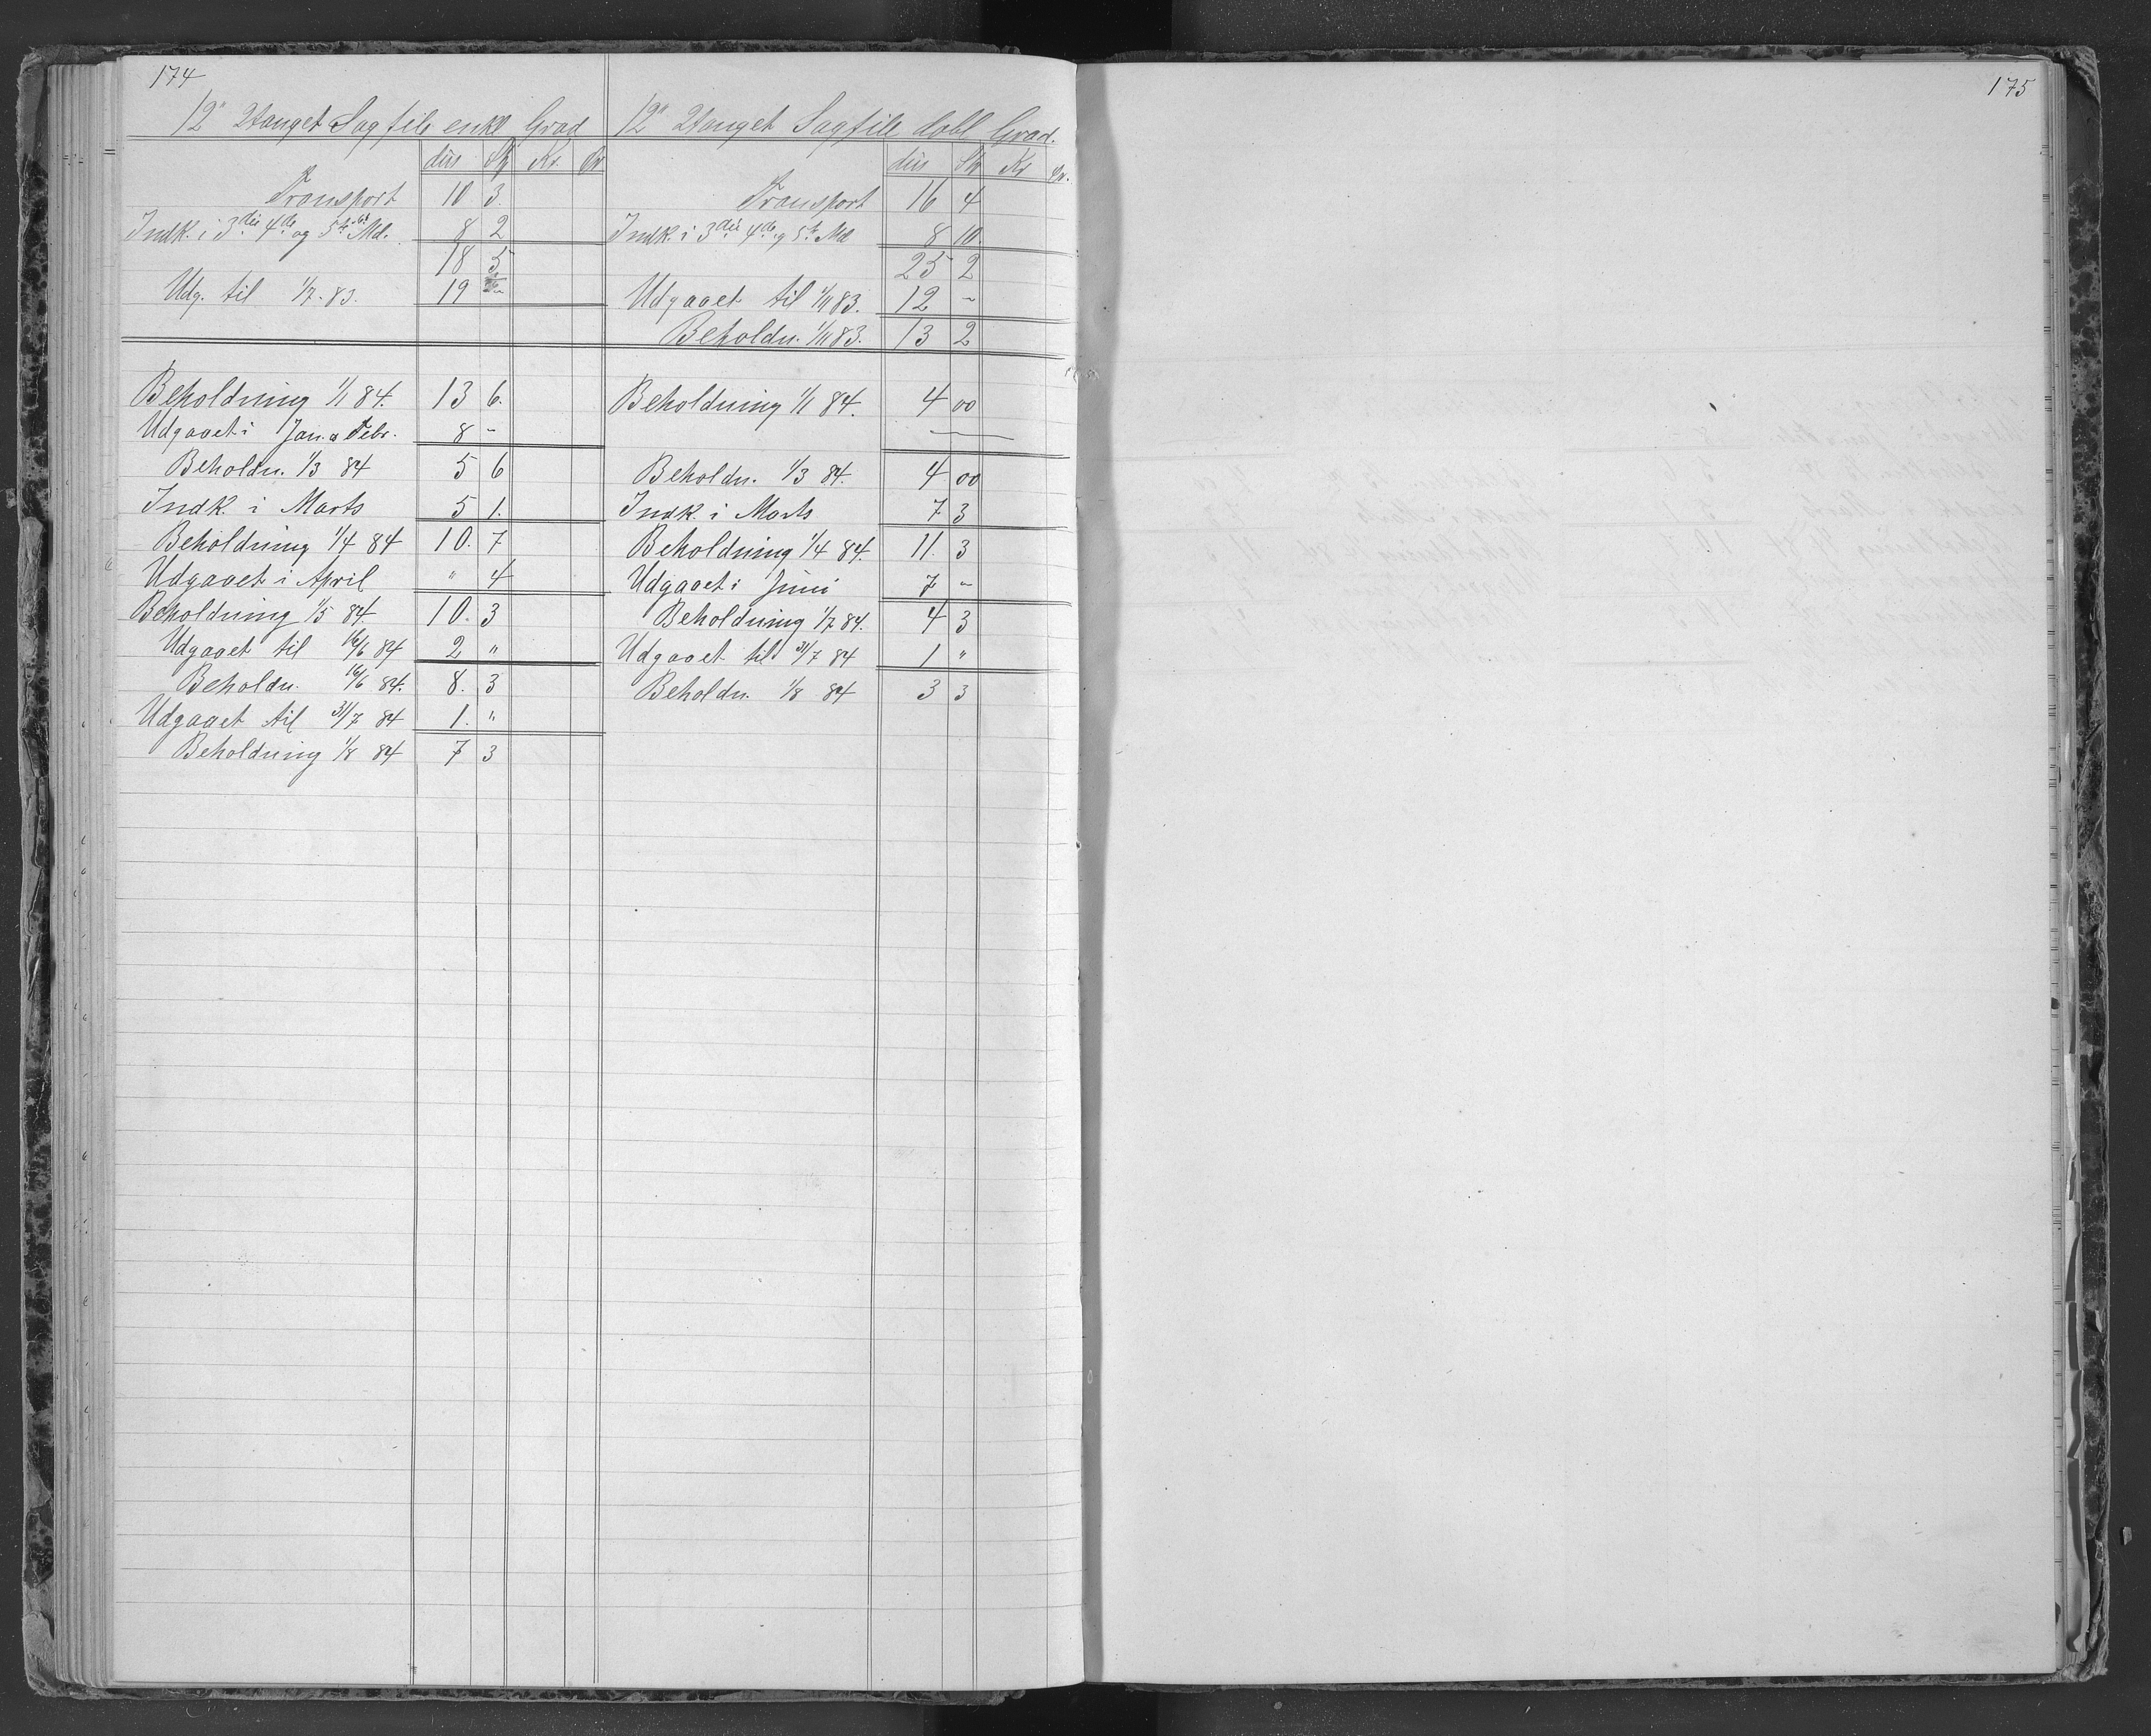 174
12" 2tanget Sagfile enkl Grad
dus Stk Kr. Ør
Transport 10 3.
Indk. i 3die 4de og 5te Md. 8 2
18 5
Udg. til 1/7. 83. 19 "
Beholdning 1/1 84. 13 6.
Udgaaet i Jan. & Febr. 8 -
Beholdn. 1/3 84 5 6
Indk. i Marts 5 1.
Beholdning 1/4 84 10. 7
Udgaaet i April " 4
Beholdning 1/5 84. 10. 3
Udgaaet til 16/6 84 2 "
Beholdn. 16/6 84. 8. 3
Udgaaet til 31/7 84 1. "
Beholdning 1/8 84 7 3
12" 2tanget Sagfile dobl Grad.
dus Stk Kr Ør.
Transport 16 4
Indk. i 3die 4de og 5te Md 8 10.
25 2
Udgaaet til 1/11 83. 12 -
Beholdn. 1/11 83. 13 2
Beholdning 1/1 84. 4 00
Beholdn. 1/3 84. 4 00
Indk. i Marts 7 3
Beholdning 1/4 84. 11. 3
Udgaaet i Juni 7 -
Beholdning 1/7 84. 4 3
Udgaaet til 31/7 84 1 "
Beholdn. 1/8 84 3 3
175